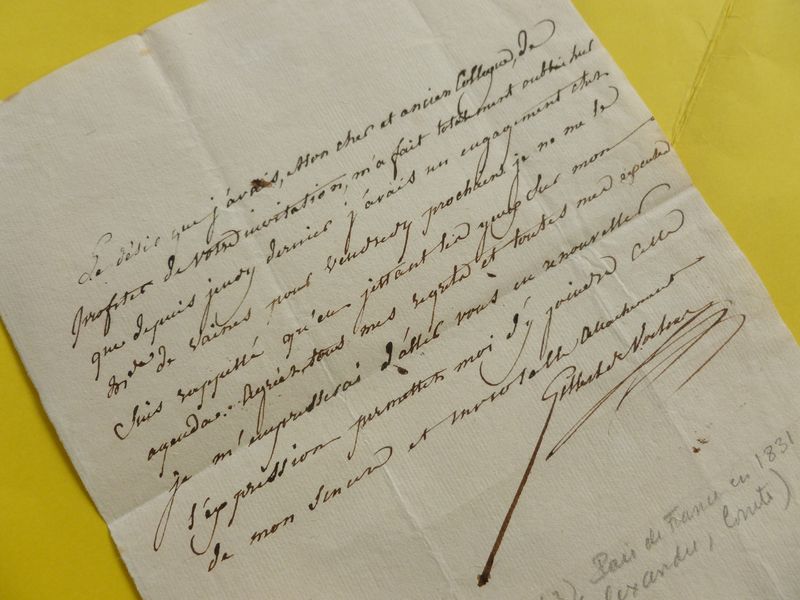 Le désir que j'avais, Mon cher et ancien Collegue, de
profiter de votre invitation, m'a fait totalement oublié hier
que depuis jeudy dernier j'avais un engagement chez
Mde de Vaines pour vendredy prochain je ne me le
suis rappellé qu'en jettant les yeux sur mon
agenda. Agréez tous mes regrets et toutes mes excuses
je m'empresserai d'aller vous en renouveller
l'expression permettez moi d'y joindre celle
de mon sincere et inviolable attachement
Gilbert de Voisins
Pair de France en 1831
Comte)